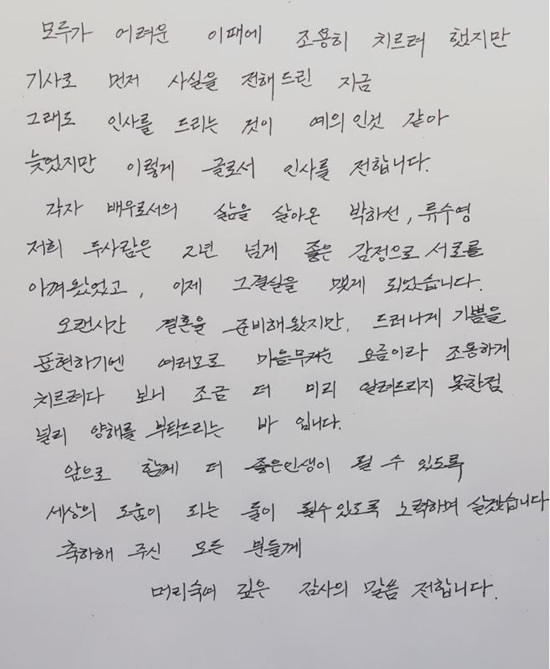 모두가 어려운 이때에 조용히 치르려 했지만
기사로 먼저 사실을 전해드린 지금
그래도 인사를 드리는 것이 예의인것 같아
늦었지만 이렇게 글로서 인사를 전합니다.
각자 배우로서의 삶을 살아온 박하선, 류수영
저희 두사람은 2년 넘게 좋은 감정으로 서로를
아껴왔었고, 이제 그결실을 맺게 되었습니다.
오랜시간 결혼을 준비해왔지만, 드러나게 기쁨을
표현하기엔 여러모로 마음무거운 요즘이라 조용하게
치르려다 보니 조금 더 미리 알려드리지 못한점
널리 양해를 부탁드리는 바 입니다.
앞으로 함께 더 좋은인생이 될 수 있도록
세상의 도움이 되는 둘이 될수있도록 노력하며 살겠습니다
축하해 주신 모든 분들께
머리숙여 깊은 감사의 말씀 전합니다.